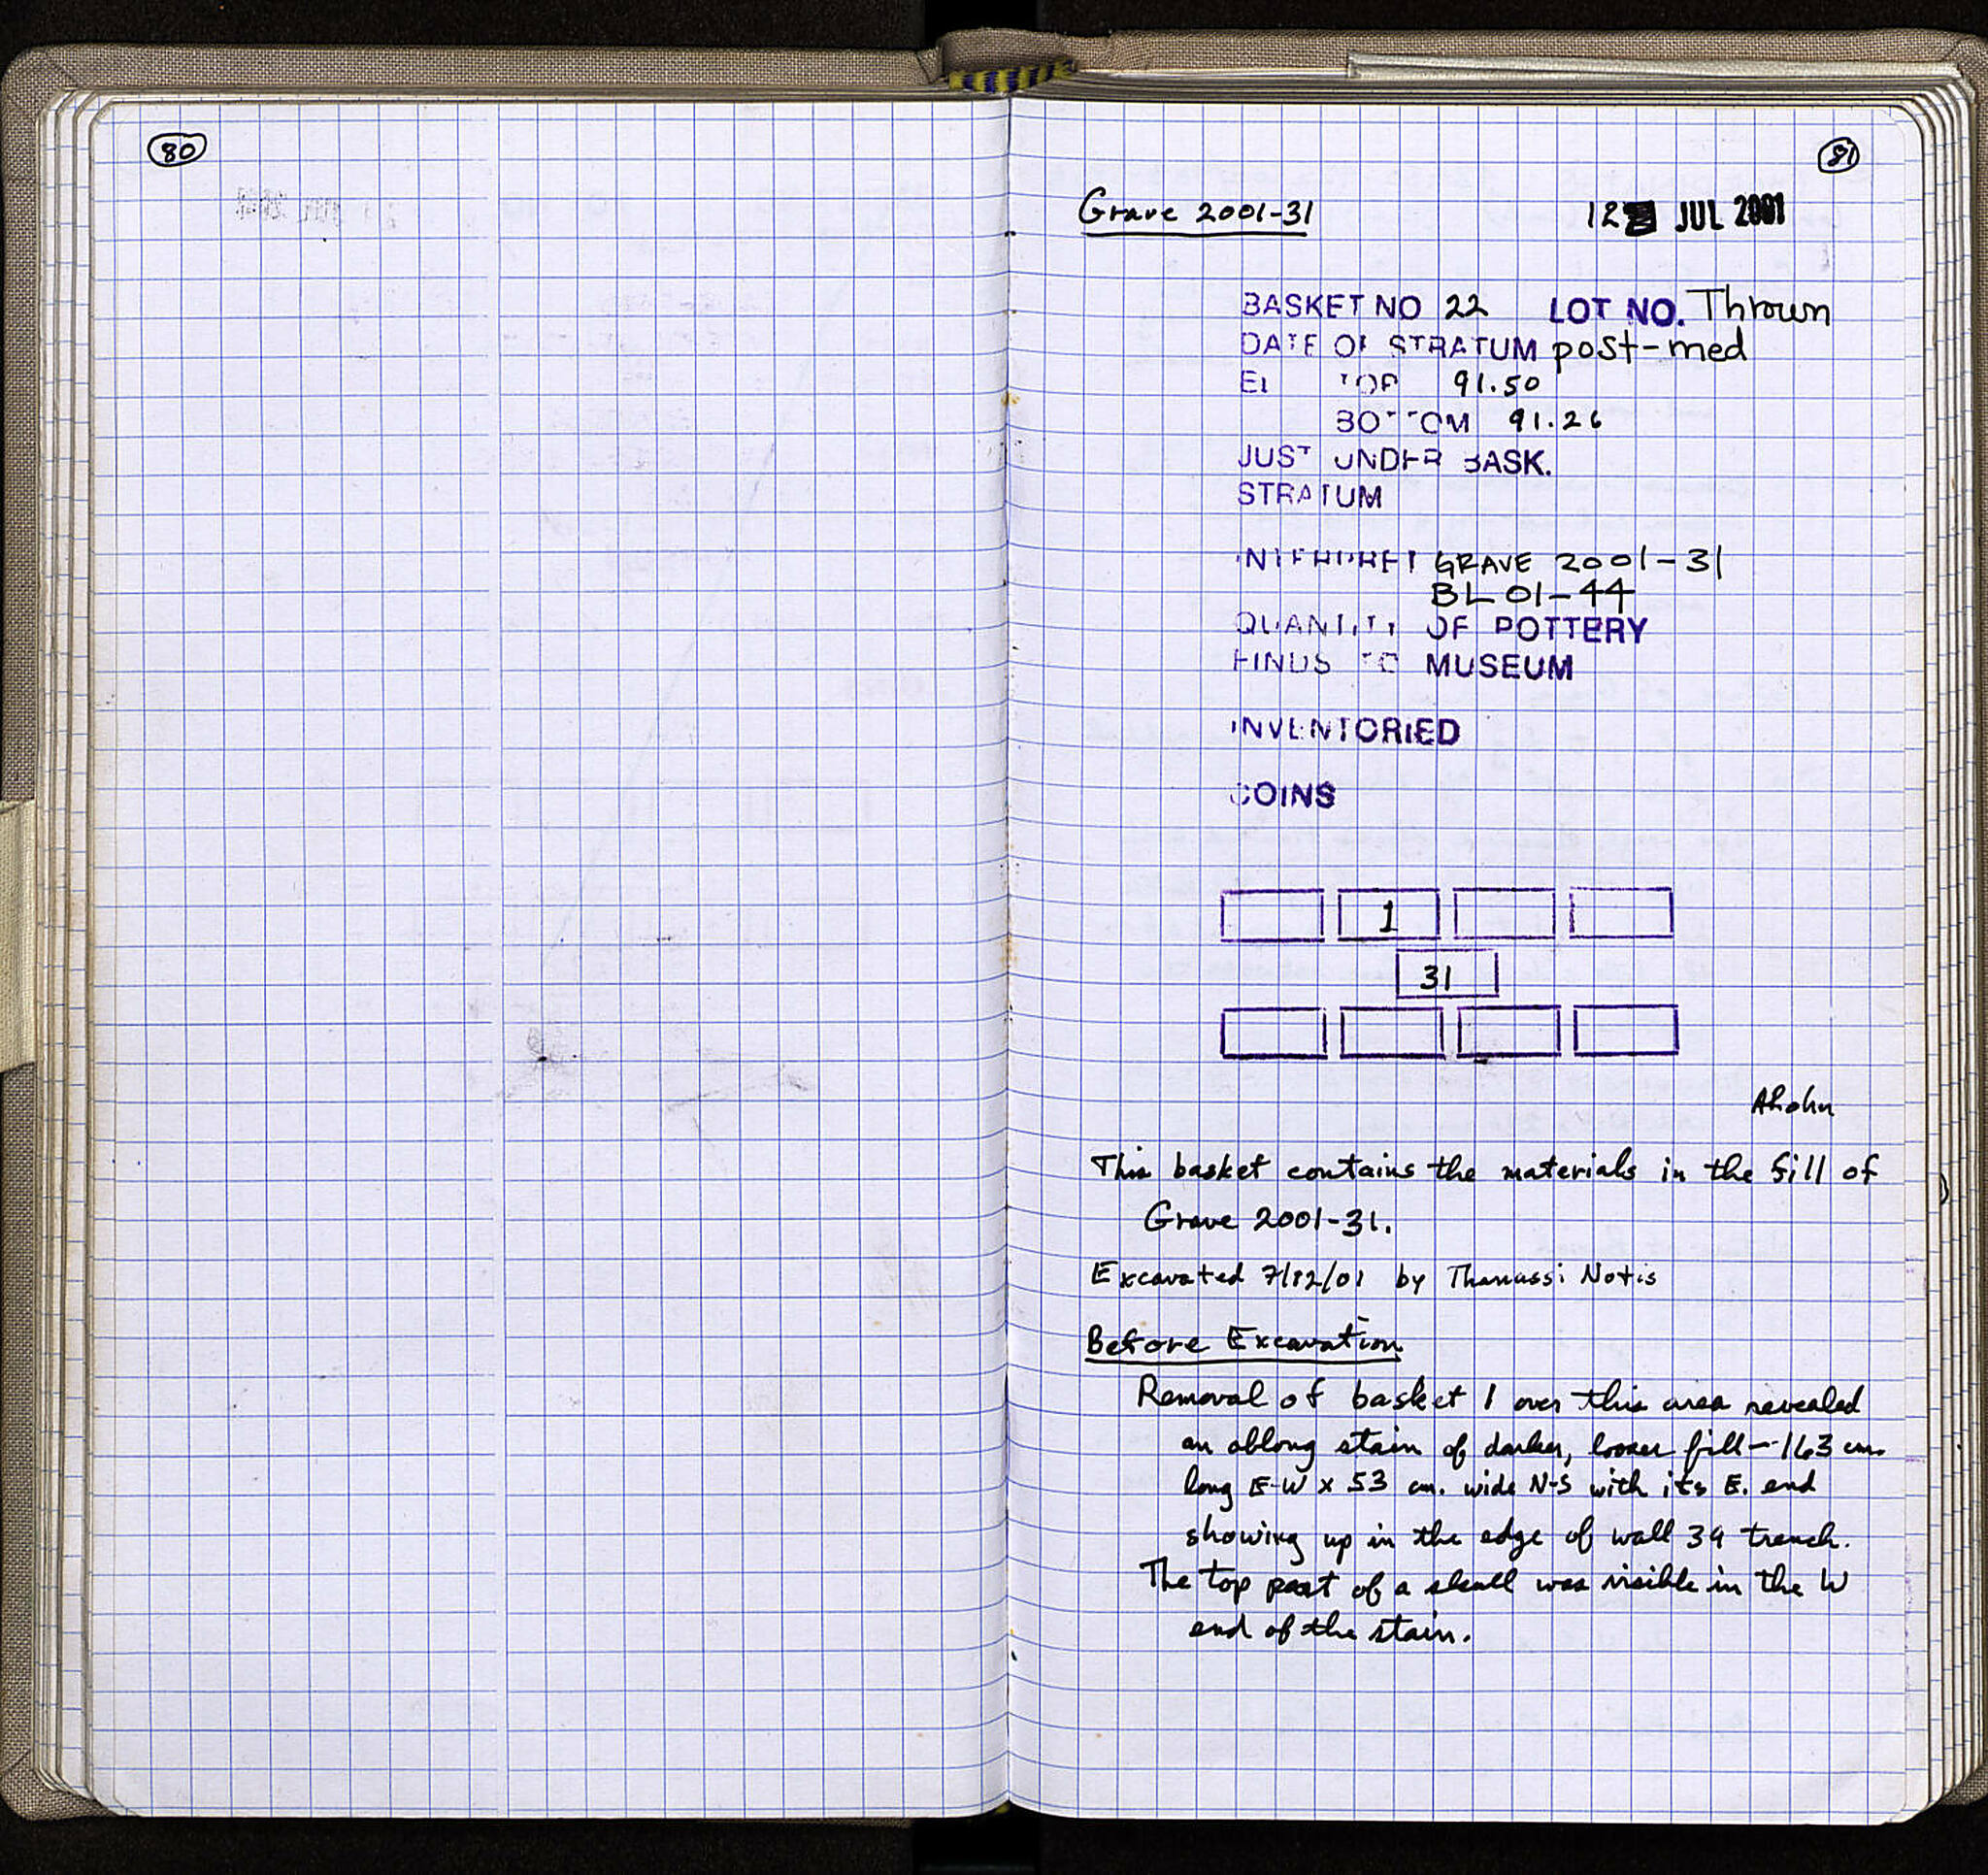 80
81
Grave 2001-31
12 JUL 2001
BASKET NO 22 LOT NO. Thrown
DATE OF STRATUM post-med
EL TOP 91.50
BOTTOM 91.26
JUST UNDER BASK.
STRATUM
INTERPRET GRAVE 2001-31
BL 01-44
QUANTITY OF POTTERY
FINDS TO MUSEUM
INVENTORIED
COINS
1
31
ARohn
This basket contains the materials in the fill of
Grave 2001-31.
Excavated 7/12/01 by Thanassi Notis
Before Excavation
Removal of basket 1 over this area revealed
an oblong stain of darker, looser fill — 163 cm.
long E-W x 53 cm. wide N-S with its E. end
showing up in the edge of wall 39 trench.
The top part of a skull was visible in the W
end of the stain.